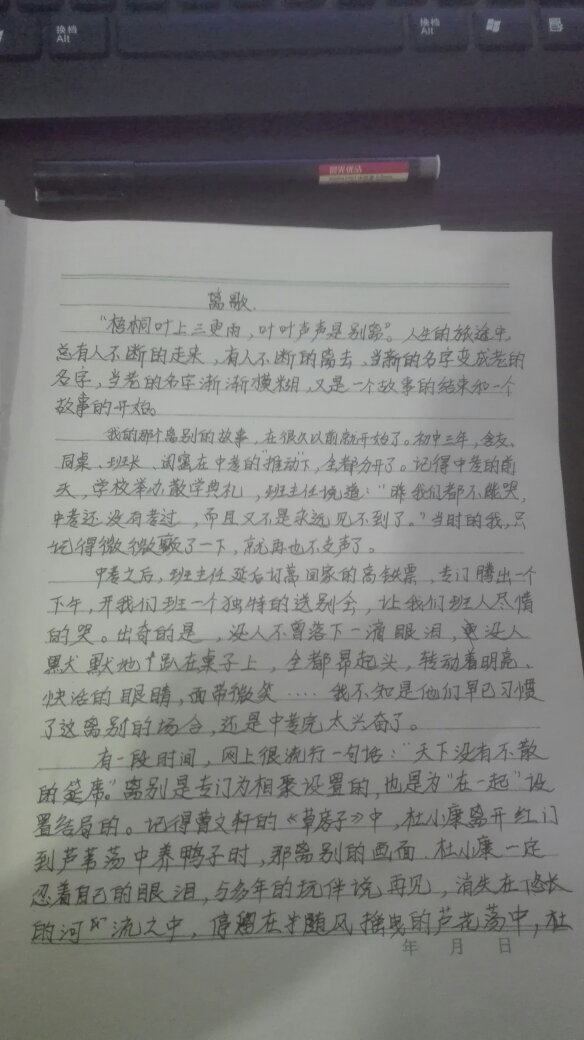 换档
Alt
换档
Alt
晨光优品
离歌.
“梧桐叶上三更雨，叶叶声声是别离”。人生的旅途中，
总有人不断的走来，有人不断的离去，当新的名字变成老的
名字，当老的名字渐渐模糊，又是一个故事的结束和一个
故事的开始。
我的那个离别的故事，在很久以前就开始了。初中三年，舍友、
同桌、班长、闺蜜在中考的“推动”下，全都分开了。记得中考的前
天，学校举办散学典礼，班主任说道：“咱我们都不能哭，
中考还没有考过，而且又不是永远见不到了。”当时的我，只
记得微微颤了一下，就再也不支声了。
中考之后，班主任延后打算回家的高铁票，专门腾出一个
下午，开我们班一个独特的送别会，让我们班人尽情
的哭。出奇的是，没人不曾落下一滴眼泪，更没人
默默地趴在桌子上，全都昂起头，转动着明亮、
快活的眼睛，面带微笑……我不知是他们早已习惯
了这离别的场合，还是中考完太兴奋了。
有一段时间，网上很流行一句话：“天下没有不散
的筵席。”离别是专门为相聚设置的，也是为“在一起”设
置结局的。记得曹文轩的《草房子》中，杜小康离开红门
到芦苇荡中养鸭子时，那离别的画面.杜小康一定
忍着自己的眼泪，与多年的玩伴说再见，消失在悠长
的河流之中，停留在随风摇曳的芦花荡中，杜
年 月 日